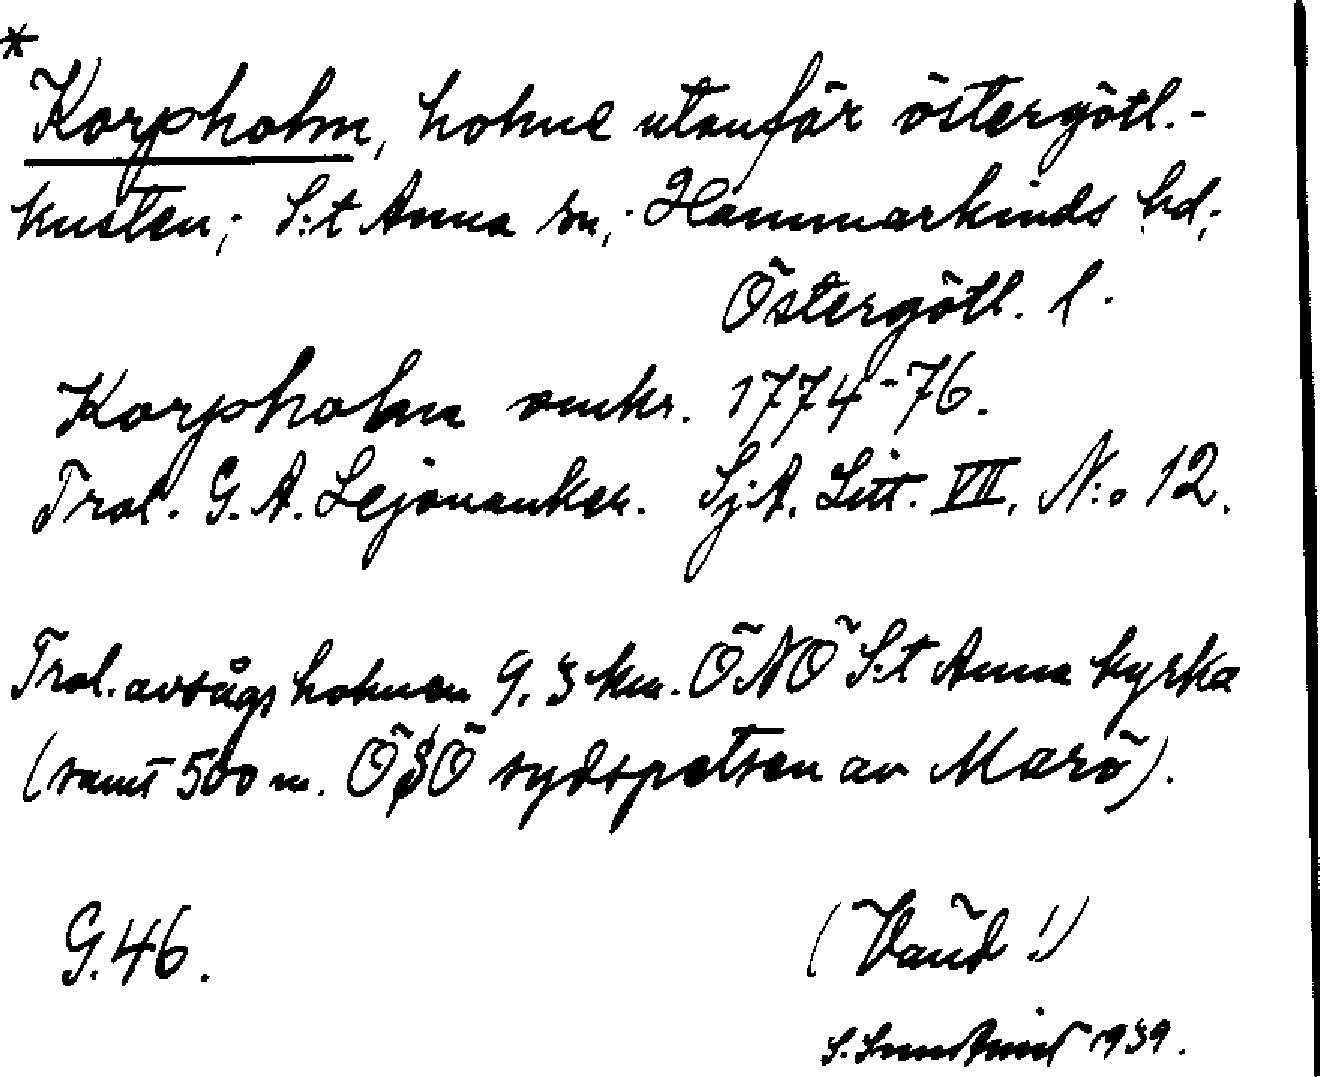 *
Korpholm, holme utanför östergötl.-
kusten; S:t Anna sn; Hammarkinds hd;
Östergötl. l.
Korpholm omkr. 1774-76.
Trol. G. A. Lejonanker. Sj.A. Litt. VII. N:o 12.
Trol. avsågs holmen 9,3 km. ÖNÖ S:t Anna kyrka
(samt 500 m. ÖSÖ sydspetsen av Marö).
G. 46.
(Vänd!)
1939.